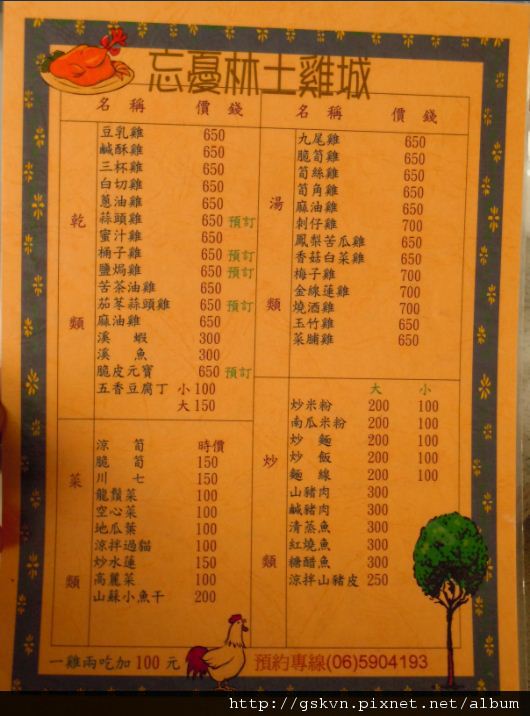 忘憂林土雞城
名稱 價錢
乾類
豆乳雞 650
鹹酥雞 650
三杯雞 650
白切雞 650
蔥油雞 650
蒜頭雞 650 預訂
蜜汁雞 650
桶子雞 650 預訂
鹽焗雞 650 預訂
苦茶油雞 650
茄苳蒜頭雞 650 預訂
麻油雞 650
溪蝦 300
溪魚 300
脆皮元寶 650 預訂
五香豆腐丁 小100
大150
菜類
涼筍 時價
脆筍 150
川七 150
龍鬚菜 100
空心菜 100
地瓜葉 100
涼拌過貓 100
炒水蓮 150
高麗菜 100
山蘇小魚干 200
名稱 價錢
湯類
九尾雞 650
脆筍雞 650
筍絲雞 650
筍角雞 650
麻油雞 650
刺仔雞 700
鳳梨苦瓜雞 650
香菇白菜雞 650
梅子雞 700
金線蓮雞 700
燒酒雞 700
玉竹雞 650
菜脯雞 650
炒類
大 小
炒米粉 200 100
南瓜米粉 200 100
炒麵 200 100
炒飯 200 100
麵線 200 100
山豬肉 300
鹹豬肉 300
清蒸魚 300
紅燒魚 300
糖醋魚 300
涼拌山豬皮 250
一雞兩吃加 100 元
預約專線(06)5904193
http://gskvn.pixnet.net/album